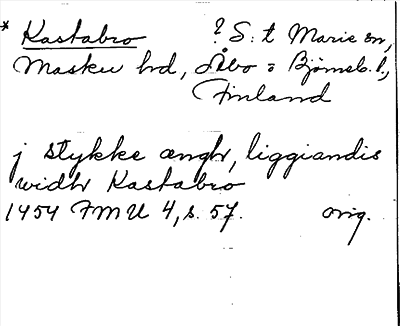 * Kastabro ? S:t Marie sn,
Masku hd, Åbo o Björneb. l.,
Finland
j stykke ængh, liggiandis
widh Kastabro
1454 FMU 4, s. 57. orig.